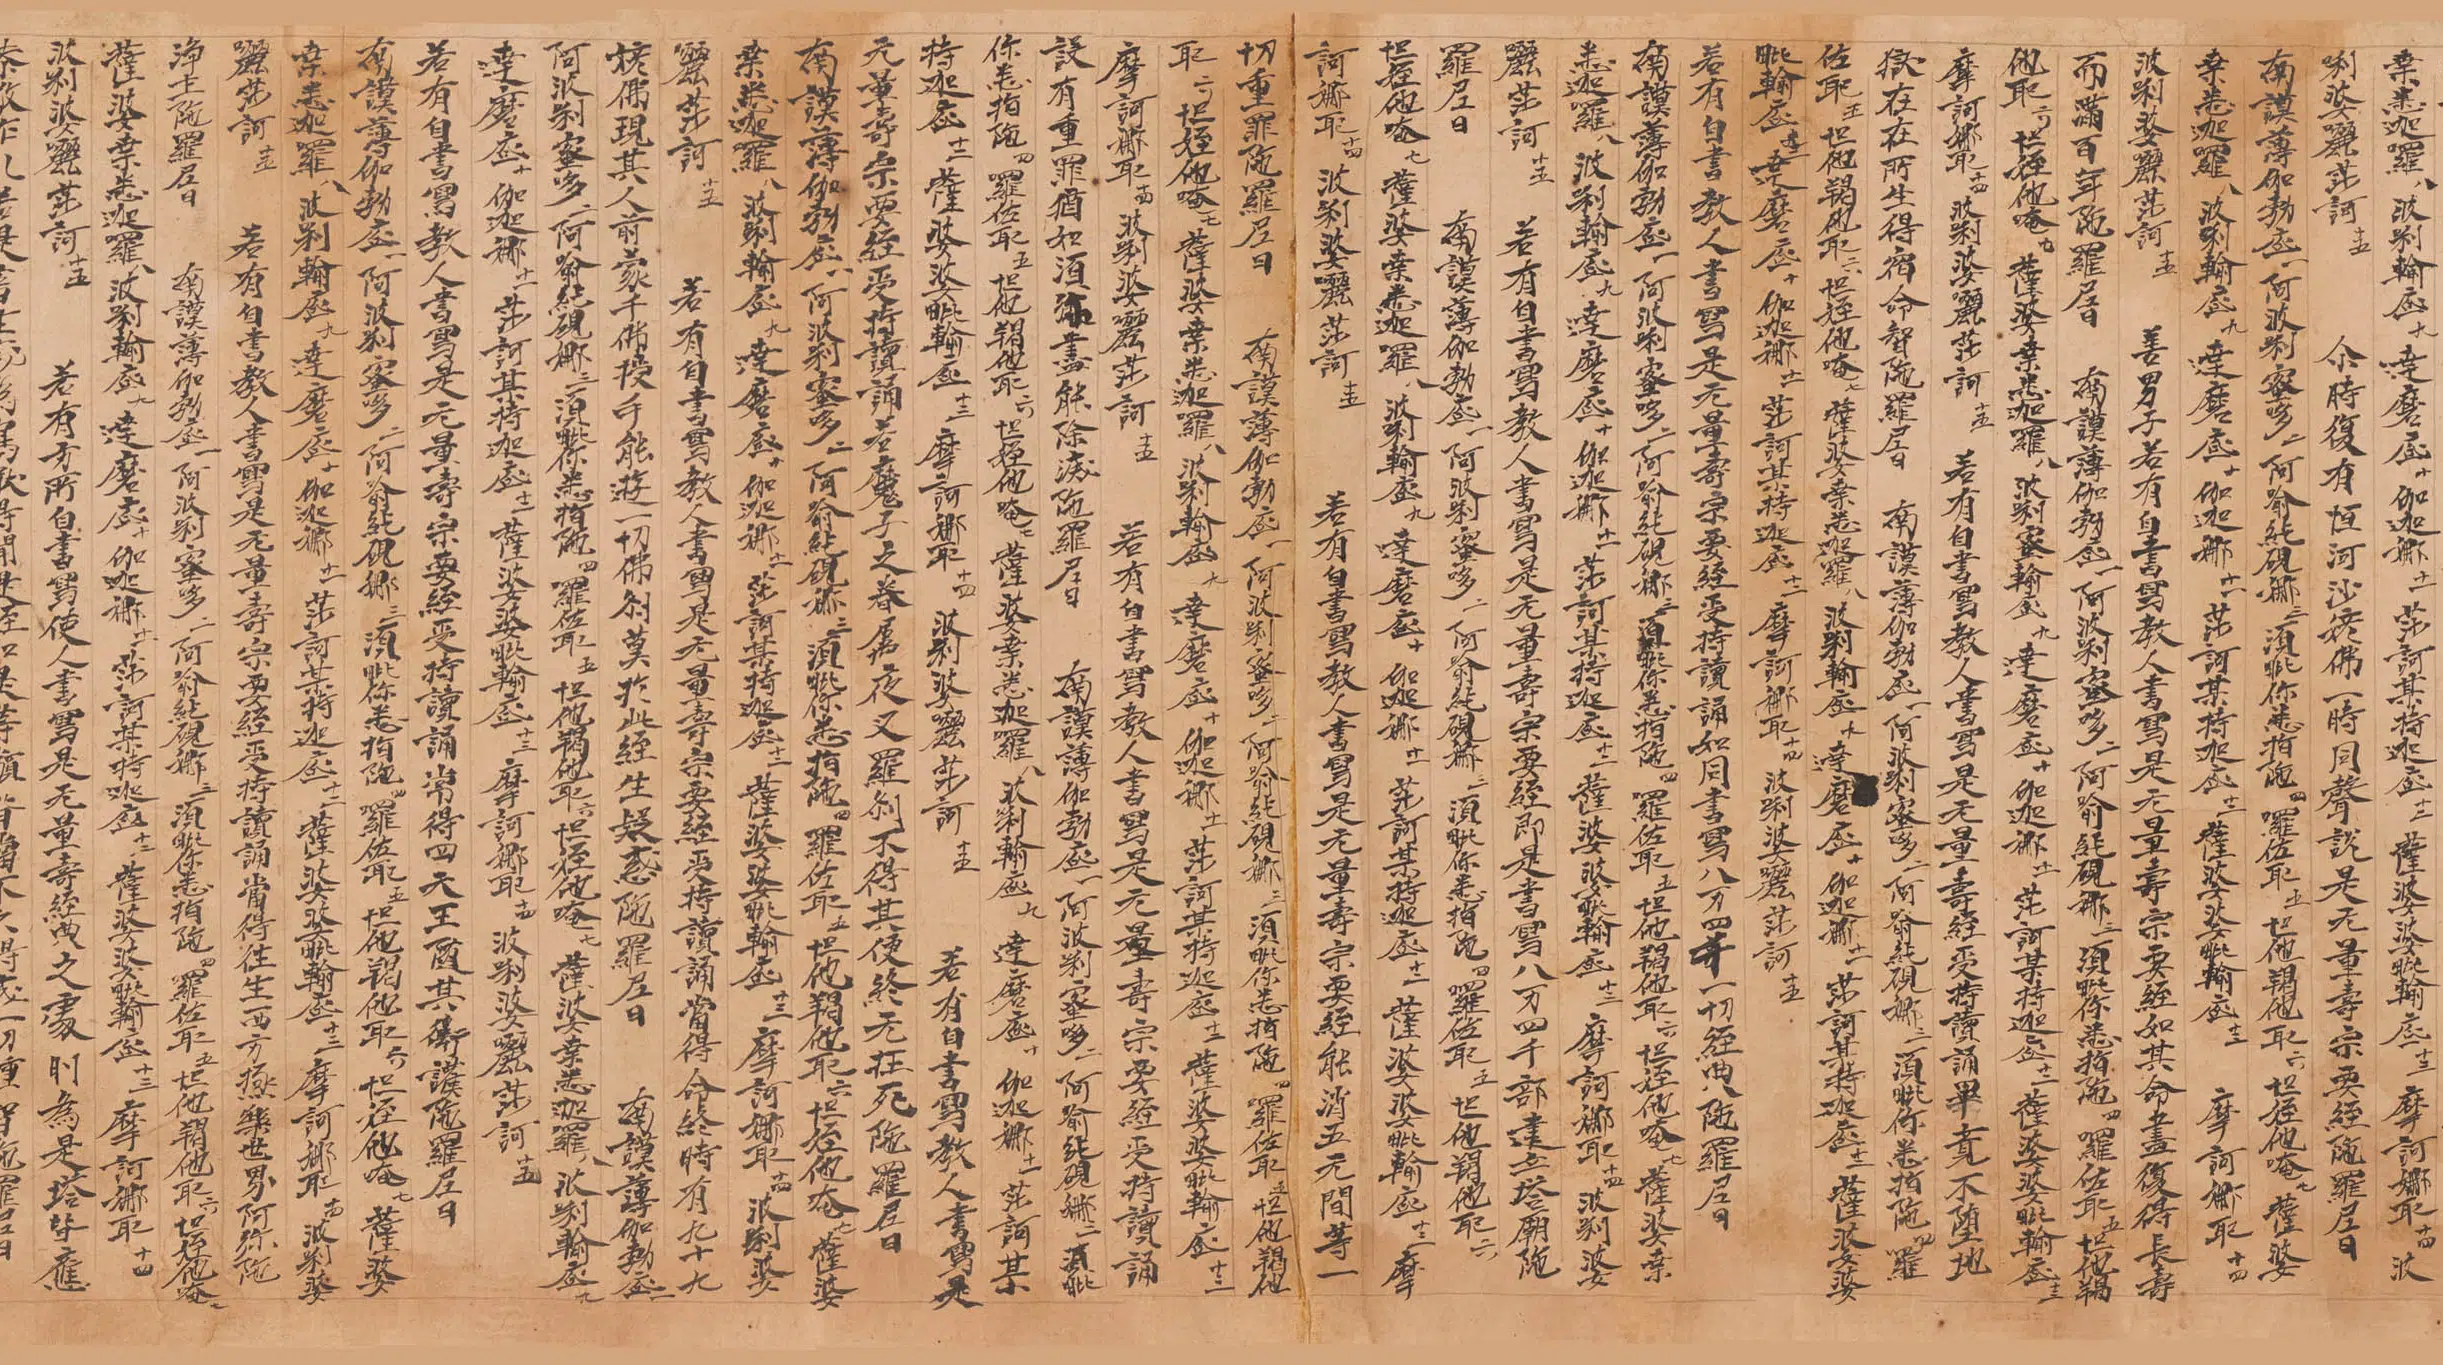 桒悉迦羅八 波唎輸底九 達磨底十 伽迦娜十一 莎訶某持迦底十二 薩婆婆毗輸底十三 摩訶娜耶十四 波
唎婆麗莎訶十五 尒時復有恒河沙姟佛一時同聲說是无量壽宗要經陁羅尼曰
南謨薄伽勃底一 阿波唎蜜哆二 阿喻紇硯娜三 須毗你悉指陁四 囉佐耶五 怛他羯他耶六 怛姪他唵七 薩婆
桒悉迦羅八 波唎輸底九 達磨底十 伽迦娜十一 莎訶某持迦底十二 薩婆婆毗輸底十三 摩訶娜耶十四
波唎婆麗莎訶十五 善男子若有自書寫教人書寫是无量壽宗要經如其命盡復得長壽
而滿百年陁羅尼曰 南謨薄伽勃底一 阿波唎蜜哆二 阿喻紇硯娜三 須毗你悉指陁四 囉佐耶五 怛他羯
他耶六 怛姪他唵七 薩婆桒悉迦羅八 波唎輸底九 達磨底十 伽迦娜十一 莎訶某持迦底十二 薩婆婆毗輸底十三
摩訶娜耶十四 波唎婆麗莎訶十五 若有自書寫教人書寫是无量壽經受持讀誦畢竟不墮地
獄在在所生得宿命智陁羅尼曰 南謨薄伽勃底一 阿波唎蜜哆二 阿喻紇硯娜三 須毗你悉指陁四 羅
佐耶五 怛他羯他耶六 怛姪他唵七 薩婆桒悉迦羅八 波唎輸底九 達磨底十 伽迦娜十一 莎訶某持迦底十二 薩婆婆
毗輸底十三 達磨底十 伽迦娜十一 莎訶某持迦底十二 摩訶娜耶十四 波唎婆麗莎訶十五
若有自書教人書寫是无量壽宗要經受持讀誦如同書寫八万四千一切經典陁羅尼曰
南謨薄伽勃底一 阿波唎蜜哆二 阿喻紇硯娜三 須毗你悉指陁四 羅佐耶五 怛他羯他耶六 怛姪他唵七 薩婆桒
悉迦羅八 波唎輸底九 達磨底十 伽迦娜十一 莎訶某持迦底十二 薩婆婆毗輸底十三 摩訶娜耶十四 波唎婆
麗莎訶十五 若有自書寫教人書寫是无量壽宗要經即是書寫八万四千部建立塔廟陁
羅尼曰 南謨薄伽勃底一 阿波唎蜜哆二 阿喻紇硯娜三 須毗你悉指陁四 囉佐耶五 怛他羯他耶六
怛姪他唵七 薩婆桒悉迦羅八 波唎輸底九 達磨底十 伽迦娜十一 莎訶某持迦底十二 薩婆婆毗輸底十三 摩
訶娜耶十四 波唎婆麗莎訶十五 若有自書寫教人書寫是无量壽宗要經能消五无間等一
切重罪陁羅尼曰 南謨薄伽勃底一 阿波唎蜜哆二 阿喻紇硯娜三 須毗你悉指陁四 羅佐耶五 怛他羯他
耶六 怛姪他唵七 薩婆桒悉迦羅八 波唎輸底九 達磨底十 伽迦娜十一 莎訶某持迦底十二 薩婆婆毗輸底十三
摩訶娜耶十四 波唎婆麗莎訶十五 若有自書寫教人書寫是无量壽宗要經受持讀誦
設有重罪猶如須弥盡能除滅陁羅尼曰 南謨薄伽勃底一 阿波唎蜜哆二 阿喻紇硯娜三 須毗
你悉指陁四 羅佐耶五 怛他羯他耶六 怛姪他唵七 薩婆桒悉迦羅八 波唎輸底九 達磨底十 伽迦娜十一 莎訶某
持迦底十二 薩婆婆毗輸底十三 摩訶娜耶十四 波唎婆麗莎訶十五 若有自書寫教人書寫是
无量壽宗要經受持讀誦若魔子之眷屬夜叉羅剎不得其便終无枉死陁羅尼曰
南謨薄伽勃底一 阿波唎蜜哆二 阿喻紇硯娜三 須毗你悉指陁四 羅佐耶五 怛他羯他耶六 怛姪他唵七 薩婆
桒悉迦羅八 波唎輸底九 達磨底十 伽迦娜十一 莎訶某持迦底十二 薩婆婆毗輸底十三 摩訶娜耶十四 波唎婆
麗莎訶十五 若有自書寫教人書寫是无量壽宗要經受持讀誦當得命終時有九十九
姟佛現其人前蒙千佛授手能遊一切佛剎莫於此經生疑惑陁羅尼曰 南謨薄伽勃底一
阿波唎蜜哆二 阿喻紇硯娜三 須毗你悉指陁四 羅佐耶五 怛他羯他耶六 怛姪他唵七 薩婆桒悉迦羅八 波唎輸底九
達磨底十 伽迦娜十一 莎訶某持迦底十二 薩婆婆毗輸底十三 摩訶娜耶十四 波唎婆麗莎訶十五
若有自書寫教人書寫是无量壽宗要經受持讀誦常得四天王隨其衛護陁羅尼曰
南謨薄伽勃底一 阿波唎蜜哆二 阿喻紇硯娜三 須毗你悉指陁四 羅佐耶五 怛他羯他耶六 怛姪他唵七 薩婆
桒悉迦羅八 波唎輸底九 達磨底十 伽迦娜十一 莎訶某持迦底十二 薩婆婆毗輸底十三 摩訶娜耶十四 波唎婆
麗莎訶十五 若有自書教人書寫是无量壽宗要經受持讀誦當得往生西方極樂世界阿弥陁
淨土陁羅尼曰 南謨薄伽勃底一 阿波唎蜜哆二 阿喻紇硯娜三 須毗你悉指陁四 羅佐耶五 怛他羯他耶六 怛姪他唵七
薩婆桒悉迦羅八 波唎輸底九 達磨底十 伽迦娜十一 莎訶某持迦底十二 薩婆婆毗輸底十三 摩訶娜耶十四
波唎婆麗莎訶十五 若有方所自書寫使人書寫是无量壽經典之處則為是塔皆應